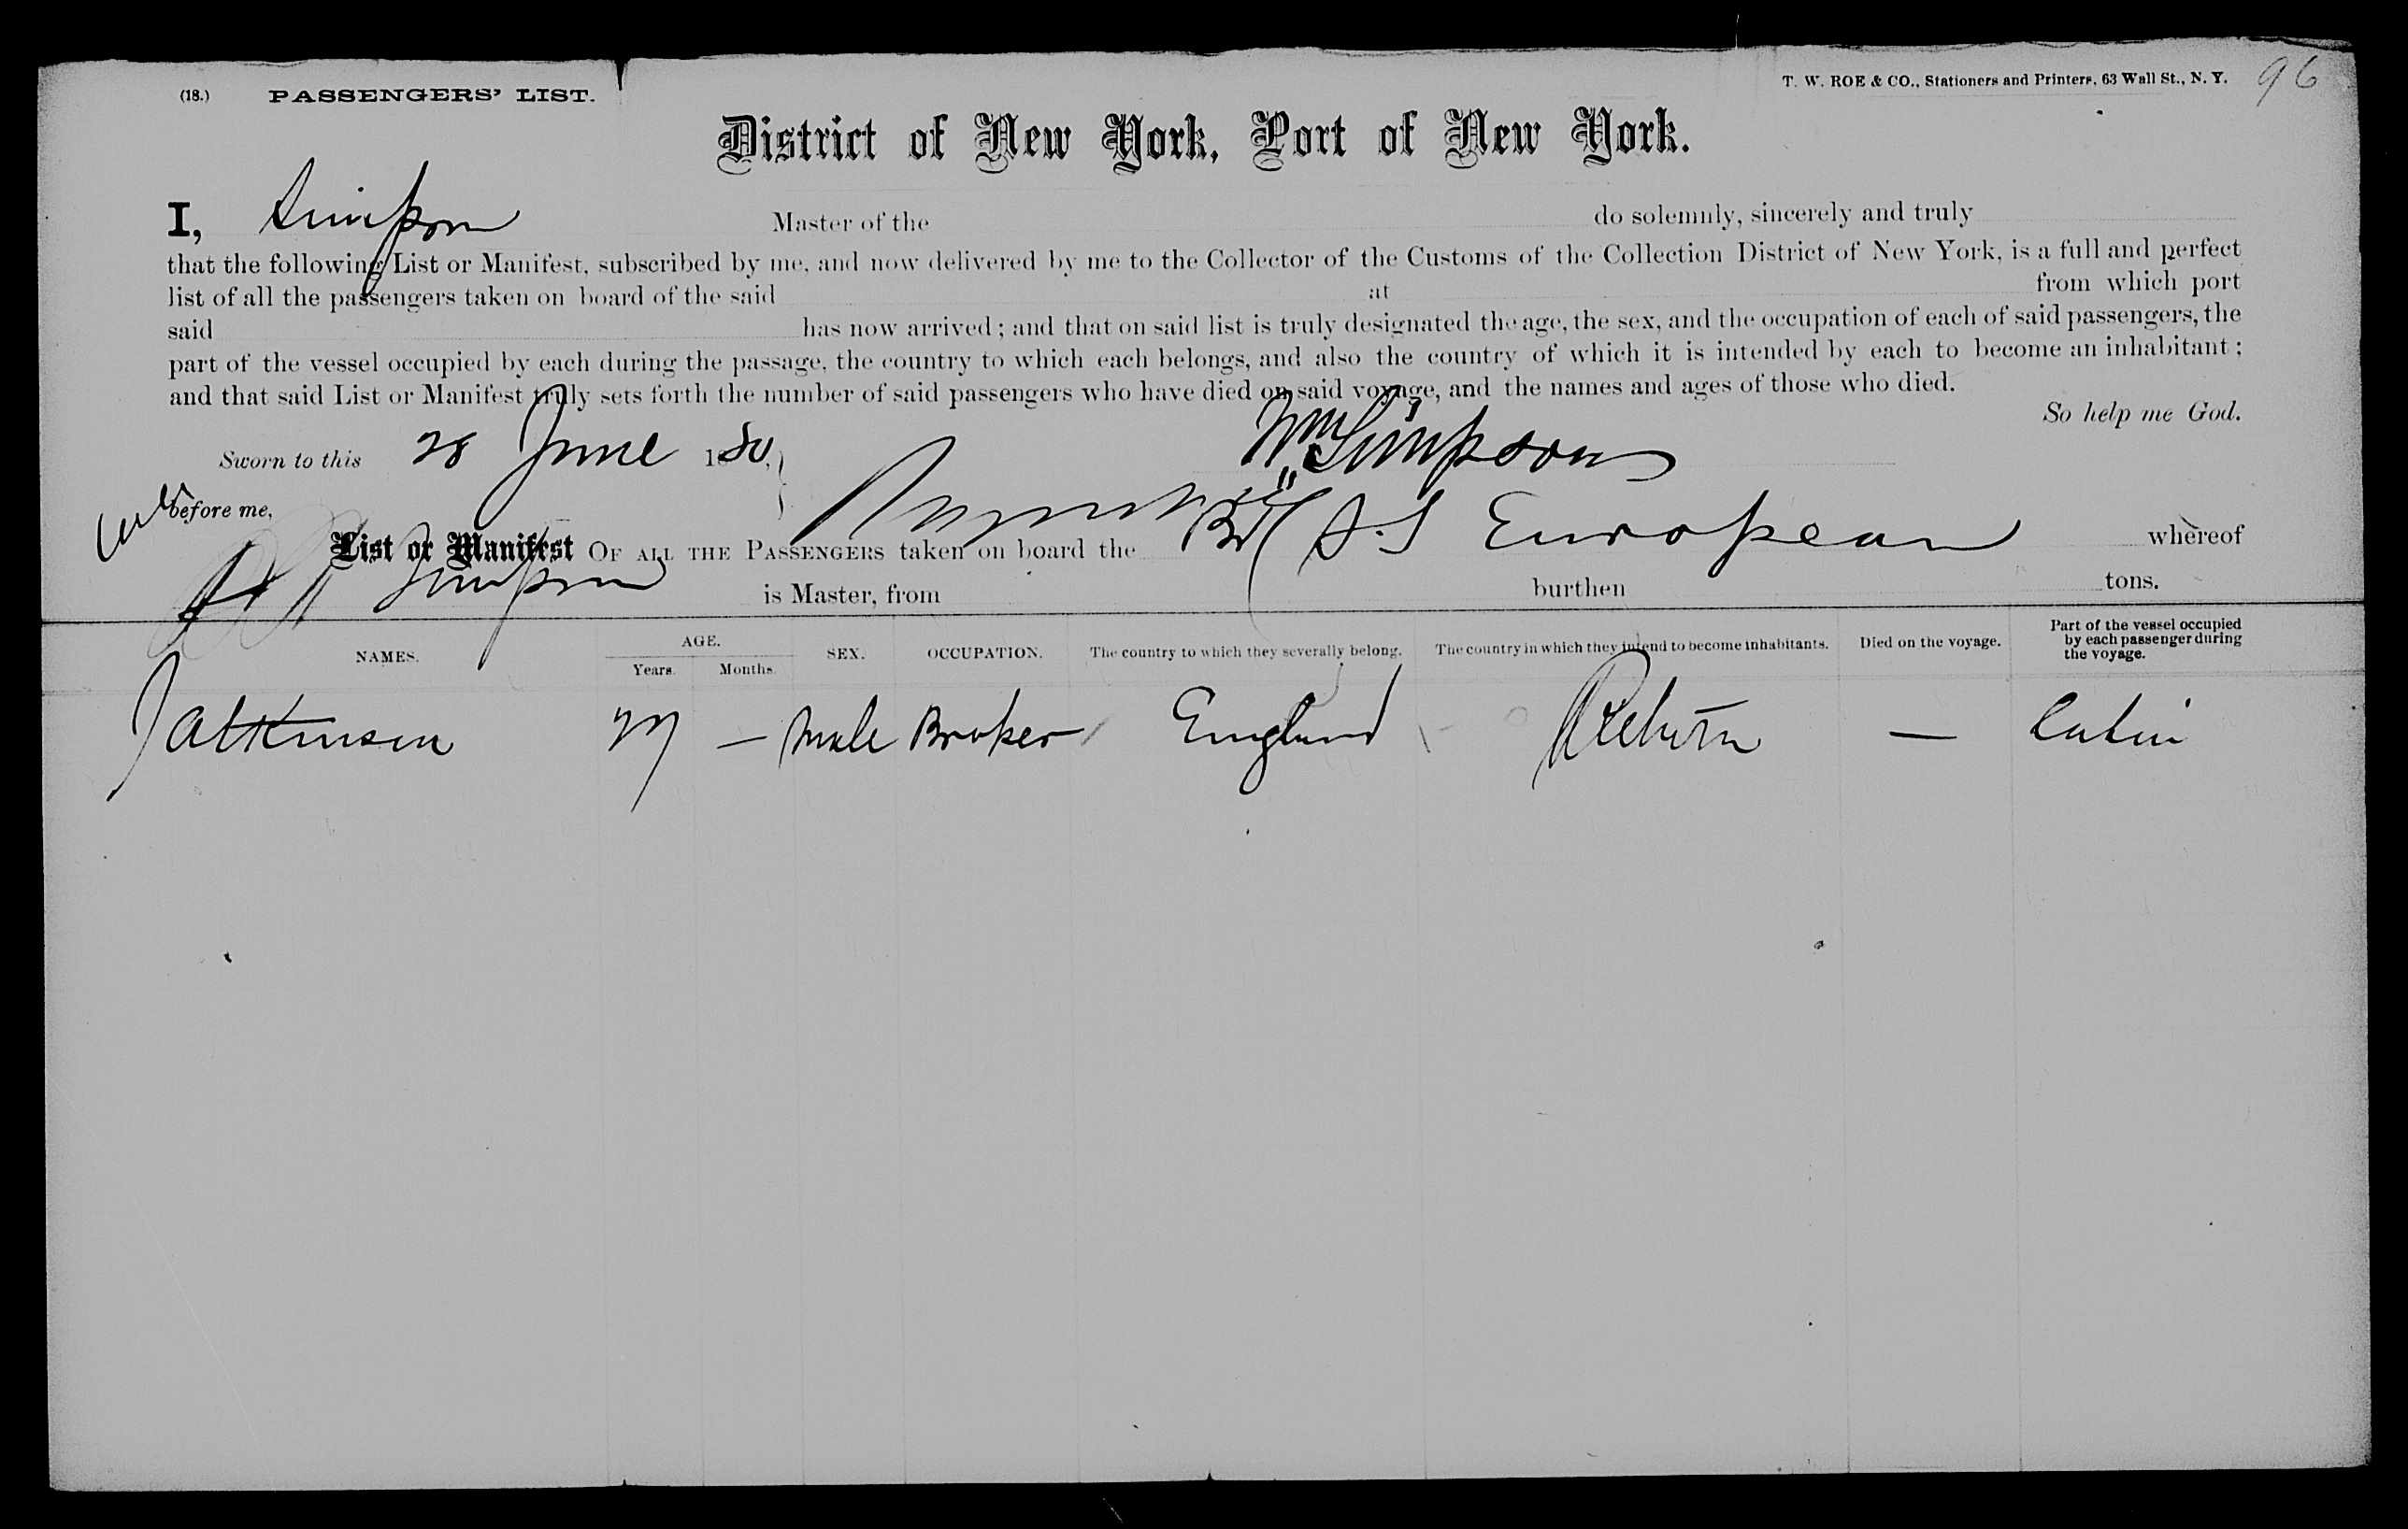 (18.) PASSENGERS' LIST. T. W. ROE & CO., Stationers and Printers, 63 Wall St., N. Y. 96
District of New York, Port of New York.
I, Simpson Master of the do solemnly, sincerely and truly
that the following List or Manifest, subscribed by me, and now delivered by me to the Collector of the Customs of the Collection District of New York, is a full and perfect
list of all the passengers taken on board of the said at from which port
said has now arrived; and that on said list is truly designated the age, the sex, and the occupation of each of said passengers, the
part of the vessel occupied by each during the passage, the country to which each belongs, and also the country of which it is intended by each to become an inhabitant;
and that said List or Manifest truly sets forth the number of said passengers who have died on said voyage, and the names and ages of those who died.
So help me God.
Sworn to this 28 June 1880, Wm Simpson
before me,
List or Manifest OF ALL THE PASSENGERS taken on board the Br S.S European whereof
Simpson is Master, from burthen tons.
NAMES. AGE. Years. Months. SEX. OCCUPATION. The country to which they severally belong. The country in which they intend to become inhabitants. Died on the voyage. Part of the vessel occupied by each passenger during the voyage.
J Atkinson — Male Broker England Return — Cabin